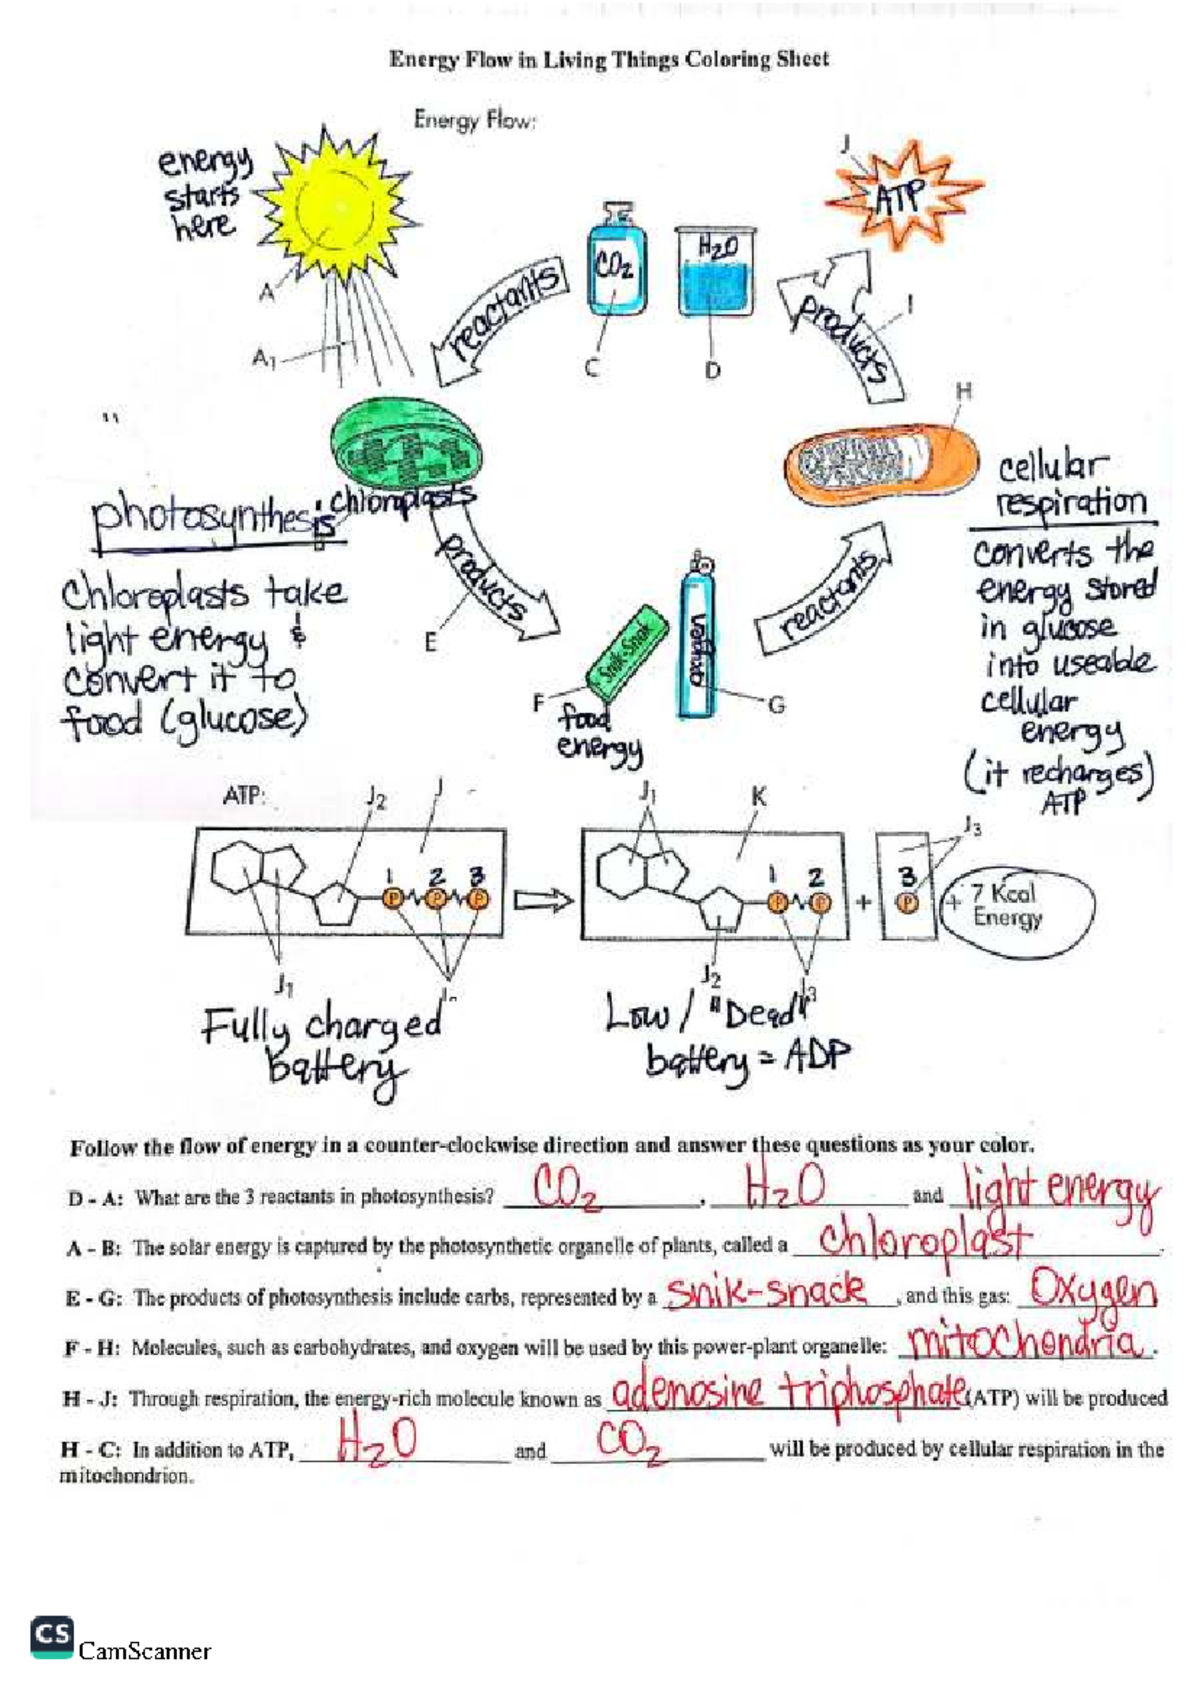 Energy Flow in Living Things Coloring Sheet
Energy Flow:
energy
starts
here
A
A1
reactants
CO2
C
H2O
D
J
ATP
products
I
H
cellular
respiration
converts the
energy stored
in glucose
into useable
cellular
energy
(it recharges)
ATP
photosynthesis
chloroplasts
Chloroplasts take
light energy &
convert it to
food (glucose)
products
E
Snik-Snak
F
food
energy
oxygen
G
reactants
ATP:
J2
J
1 2 3
P P P
J1
Fully charged
battery
J1
K
1 2
P P
J2
J3
+
3
P
J3
+ 7 Kcal
Energy
Low / "Dead"
battery = ADP
Follow the flow of energy in a counter-clockwise direction and answer these questions as your color.
D - A: What are the 3 reactants in photosynthesis? CO2, H2O and light energy
A - B: The solar energy is captured by the photosynthetic organelle of plants, called a chloroplast.
E - G: The products of photosynthesis include carbs, represented by a snik-snack, and this gas: Oxygen
F - H: Molecules, such as carbohydrates, and oxygen will be used by this power-plant organelle: mitochondria.
H - J: Through respiration, the energy-rich molecule known as adenosine triphosphate (ATP) will be produced
H - C: In addition to ATP, H2O and CO2 will be produced by cellular respiration in the
mitochondrion.
CS CamScanner